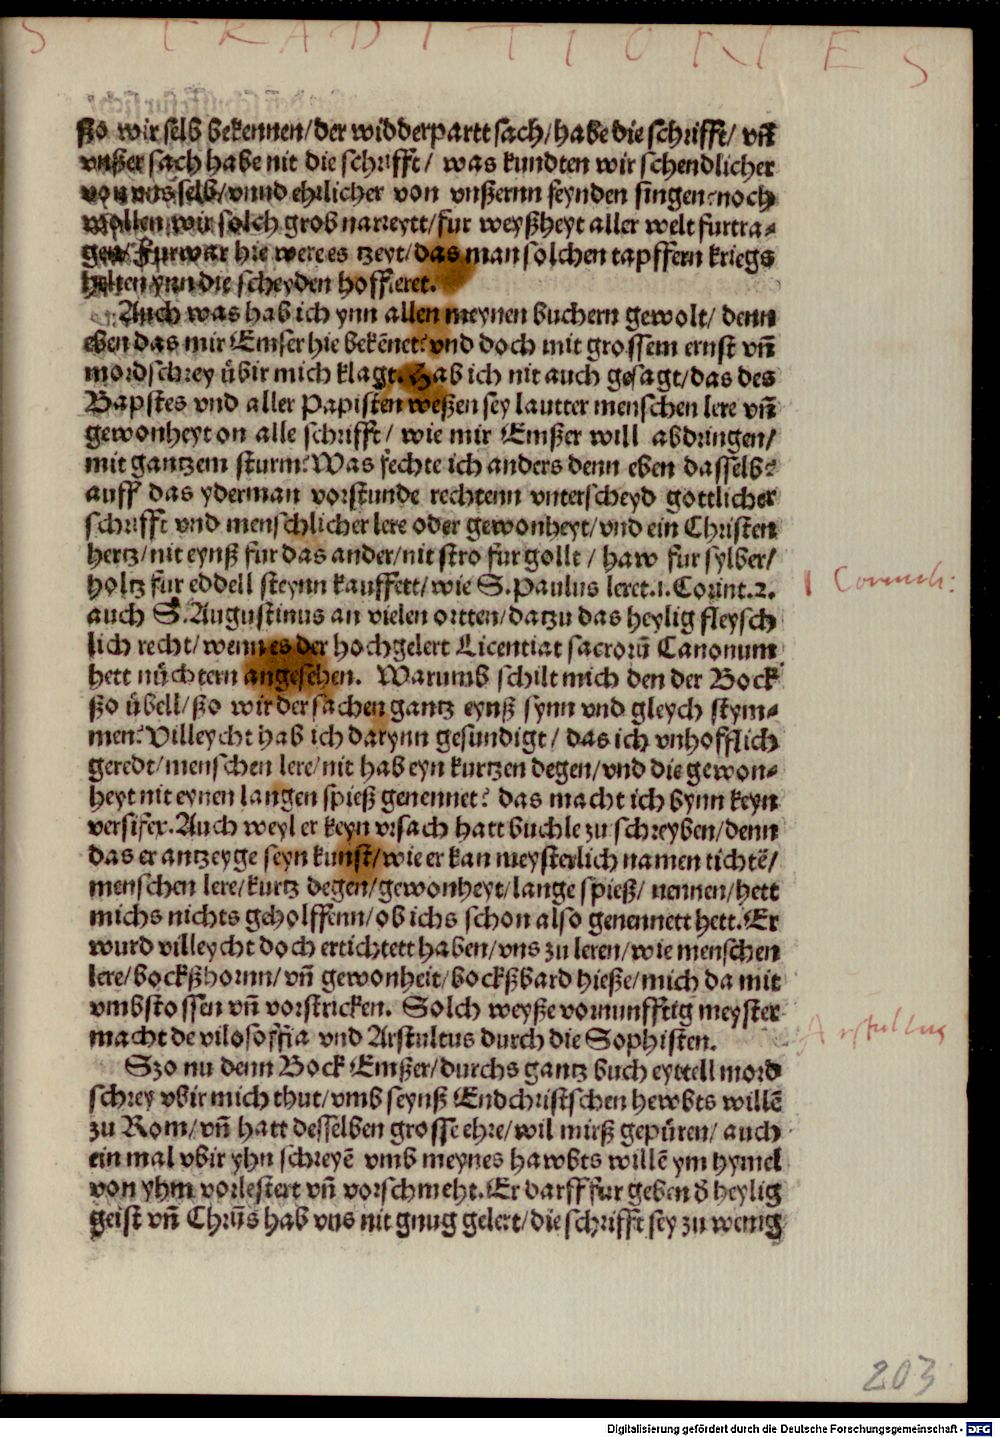 S TRADITIONES
ßo wir selb bekennen/der widderpartt sach/habe die schrifft/ vñ
vnßer sach habe nit die schrifft/ was kundten wir schendlicher
von vns selb/vnnd ehrlicher von vnßernn feynden singen: noch
wollen wir solch grob narreytt/fur weyßheyt aller welt furtra⸗
gen/ Furwar hie were es tzeyt/das man solchen tapffern kriegs
helten ynn die scheyden hoffieret.
Auch was hab ich ynn allen meynen buchern gewolt/ denn
eben das mir Emser hie bekēnet? vnd doch mit grossem ernst vñ
mordschrey übir mich klagt. Hab ich nit auch gesagt/das des
Bapstes vnd aller Papisten weßen sey lautter menschen lere vñ
gewonheyt on alle schrifft/ wie mir Emßer will abdringen/
mit gantzem sturm? Was fechte ich anders denn eben dasselb?
auff das yderman vorstunde rechtenn vnterscheyd gottlicher
schrifft vnd menschlicher lere oder gewonheyt/vnd ein Christen
hertz/nit eynß fur das ander/nit stro fur gollt/ haw fur sylber/
holtz fur eddell steynn kauffett/wie S. Paulus leret.1. Corint.2.
1 Corinth:
auch S. Augustinus an vielen ortten/datzu das heylig fleysch
lich recht/wenn es der hochgelert Licentiat sacrorū Canonum
hett nüchtern angesehen. Warumb schilt mich den der Bock
ßo übell/ßo wir der sachen gantz eynß synn vnd gleych stym⸗
men? Villeycht hab ich darynn gesundigt/ das ich vnhofflich
geredt/menschen lere/nit hab eyn kurtzen degen/vnd die gewon⸗
heyt nit eynen langen spieß genennet? das macht ich bynn keyn
versifex. Auch weyl er keyn vrsach hatt buchle zu schreyben/denn
das er antzeyge seyn kunst/wie er kan meysterlich namen tichtē/
menschen lere/kurtz degen/gewonheyt/lange spieß/ nennen/hett
michs nichts geholffenn/ob ichs schon also genennett hett. Er
wurd villeycht doch ertichtett haben/vns zu leren/wie menschen
lere/bockßhornn/vñ gewonheit/bockßbard hieße/mich da mit
vmbstossen vñ vorstricken. Solch weyße vornunfftig meyster
macht de vilosoffia vnd Arstultus durch die Sophisten.
Arstultus
Szo nu denn Bock Emßer/durchs gantz buch eyttell mord
schrey vbir mich thut/vmb seynß Endchristschen hewbts willē
zu Rom/vñ hatt desselben grosse ehre/wil mirß gepüren/ auch
ein mal vbir yhn schreyē vmb meynes hawbts willē ym hymel
von yhm vorlestert vñ vorschmeht. Er darff fur geben d̄ heylig
geist vñ Chrūs hab vns nit gnug gelert/die schrifft sey zu wenig
203
Digitalisierung gefördert durch die Deutsche Forschungsgemeinschaft - DFG